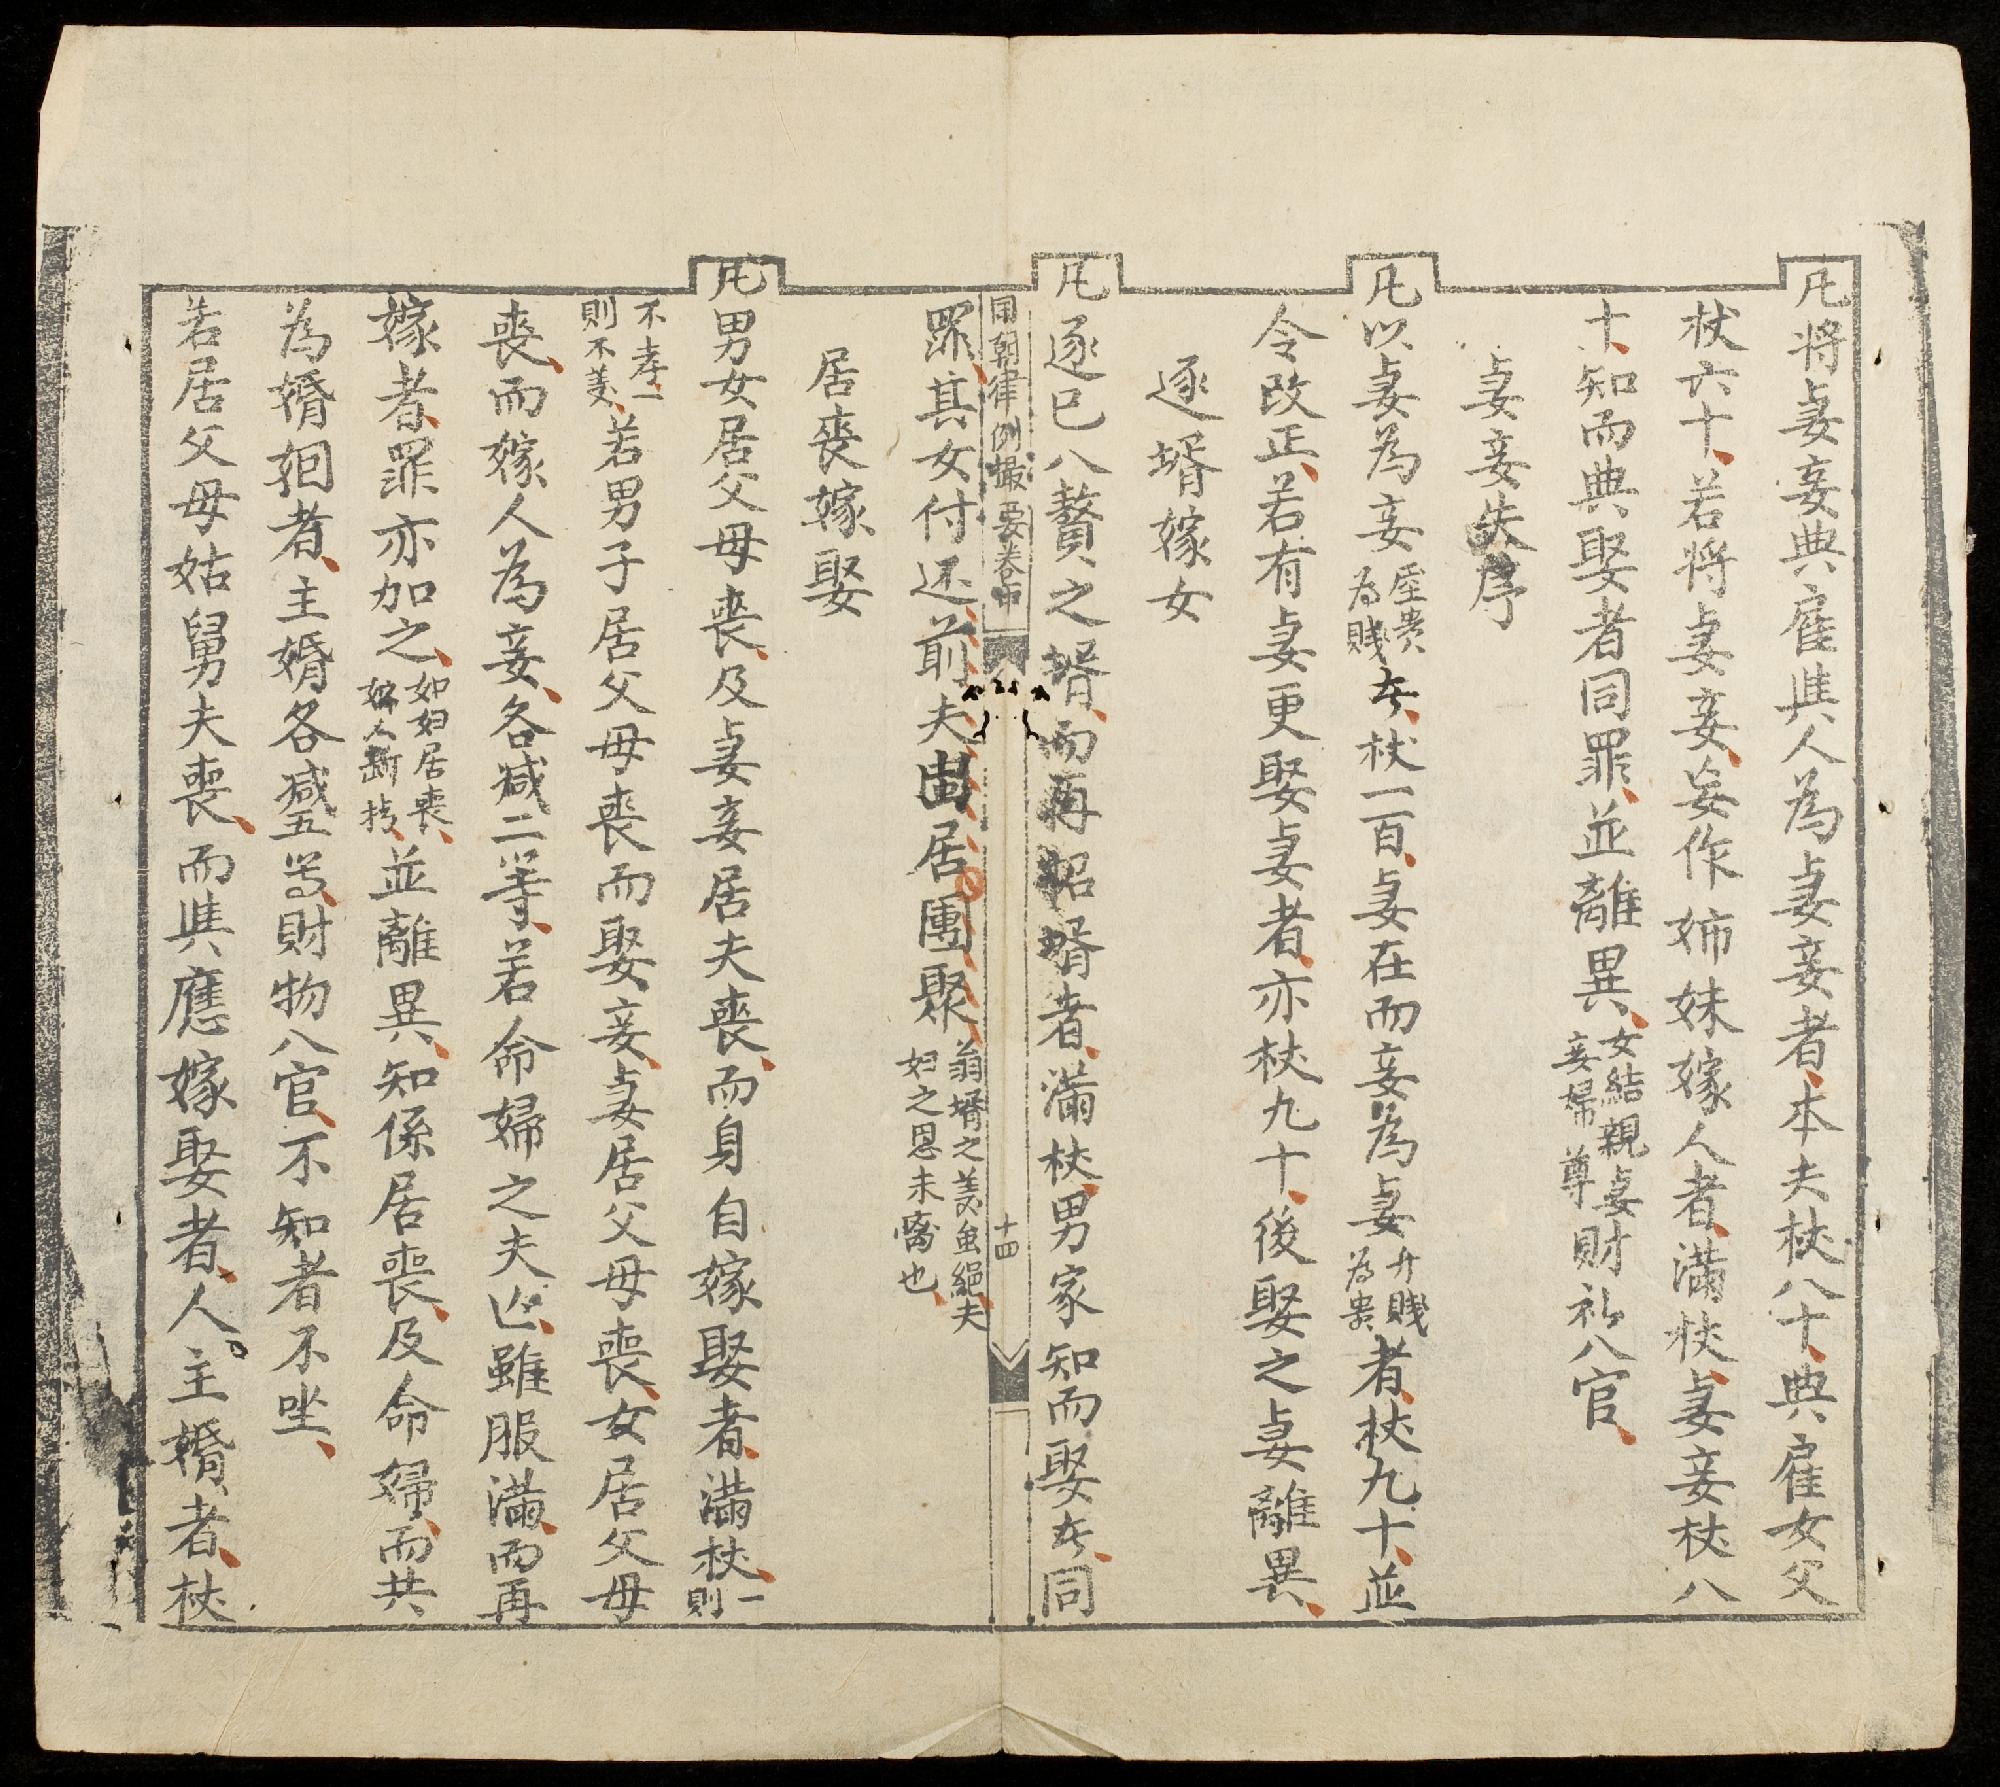 凡將妻妾典雇與人為妻妾者本夫杖八十典雇女父
杖六十若將妻妾妄作姉妹嫁人者滿杖妻妾杖八
十知而典娶者同罪並離異女結親妻妾婦尊財礼入官
妻妾失序
凡以妻為妾壓貴為賤者杖一百妻在而妾為妻升賤為貴者杖九十並
令改正若有妻更娶妻者亦杖九十後娶之妻離異
逐壻嫁女
凡逐已入贅之壻而再招壻者滿杖男家知而娶者同
國朝律例撮要卷中 十四
罪其女付还前夫出居團聚翁壻之義虽絕夫妇之恩未离也
居喪嫁娶
凡男女居父母喪及妻妾居夫喪而身自嫁娶者滿杖一則
不孝一則不義若男子居父母喪而娶妾妻居父母喪女居父母
喪而嫁人為妾各减二等若命婦之夫亡雖服滿而再
嫁者罪亦加之如妇居喪婦人斷杖並離異知係居喪及命婦而共
為婚姻者主婚各减五等財物入官不知者不坐
若居父母姑舅夫喪而與應嫁娶者人主婚者杖